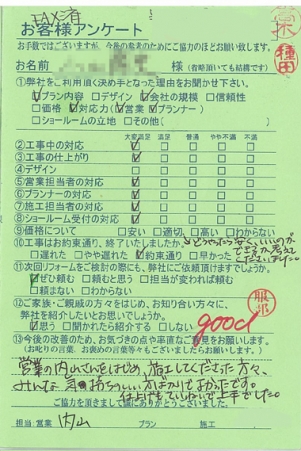 FAX済
お客様アンケート
お手数ではございますが、今後の参考のためにご協力のほどお願い致します。
お名前 様 (省略頂いても結構です)
①弊社をご利用頂く決め手となった理由をお聞かせ下さい。
☑プラン内容 □デザイン ☑会社の規模 □信頼性
□価格 ☑対応力(☑営業 ☑プランナー)
□ショールームの立地 □その他(
大変満足 満足 普通 やや不満 不満
②工事中の対応
③工事の仕上がり
④デザイン
⑤営業担当者の対応
⑥プランナーの対応
⑦施工担当者の対応
⑧ショールーム受付の対応
⑨価格について □安い □適切 □高い □わからない
⑩工事はお約束通り、終了いたしましたか。
□遅れた □やや遅れた ☑約束通り □早かった
⑪次回リフォームをご検討の際にも、弊社にご依頼頂けますでしょうか。
☑ぜひ頼む □頼むと思う □担当が変われば頼む
□頼まない □わからない
⑫ご家族・ご親戚の方々をはじめ、お知り合い方々に、
弊社を紹介したいとお思いでしょうか。
☑思う □聞かれたら紹介する □しない
good
⑬今後の改善のため、お気づきの点や率直なご意見をお願いします。
(お叱りの言葉、お褒めの言葉等々ございましたらお願いします。)
営業の内山さんをはじめ、施工してくださった方々、
みんな気持ちのいい方ばかりでよかったです。
仕上げもていねいで上手でした。
ご協力を頂きまして誠にありがとうございました。
担当:営業 内山 プラン 施工